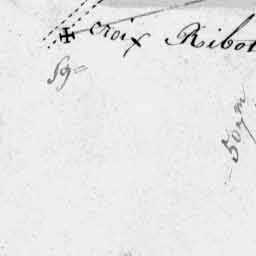 croix Ribot
59=
507m